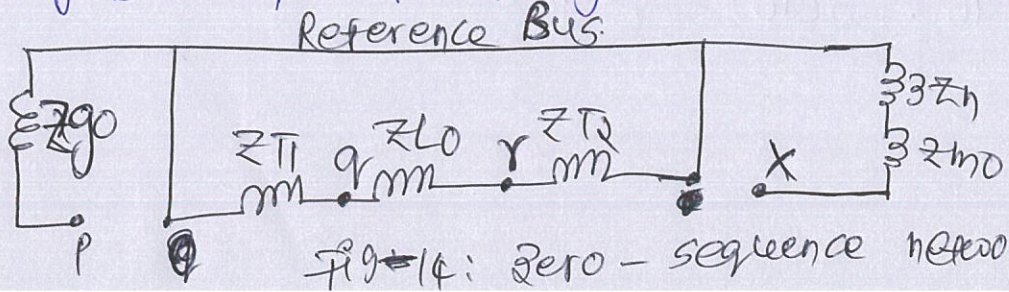 Reference Bus.
Zg0
ZT1 q ZL0 r ZT2
X
3Zn
Zm0
p
Fig-14: Zero - sequence